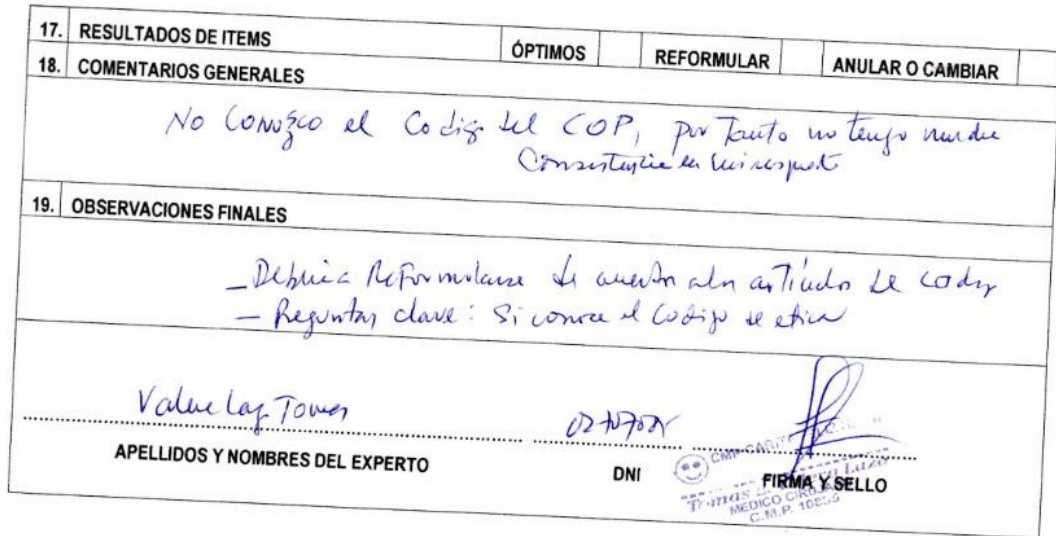 17. RESULTADOS DE ITEMS ÓPTIMOS REFORMULAR ANULAR O CAMBIAR
18. COMENTARIOS GENERALES
No Conozco el Codigo del COP, por Tanto no tengo
Consistencia en mi respuesta
19. OBSERVACIONES FINALES
– Deberia Reformularse de acuerdo a los artículos de
– Preguntas clave: Si conoce el Codigo de etica
APELLIDOS Y NOMBRES DEL EXPERTO DNI FIRMA Y SELLO
MEDICO CIRUJANO
C.M.P.